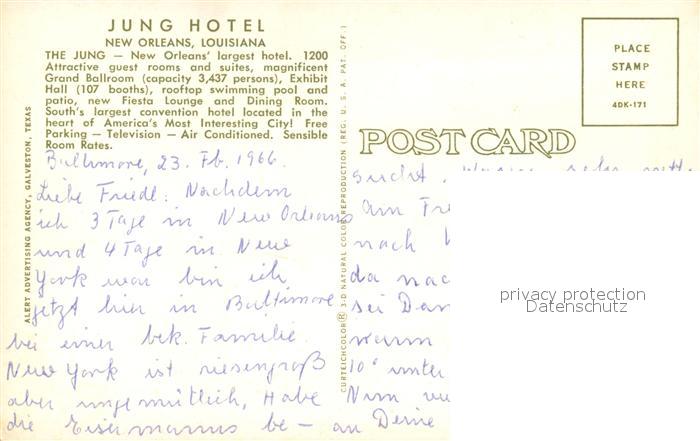 JUNG HOTEL
NEW ORLEANS, LOUISIANA
THE JUNG — New Orleans' largest hotel. 1200
Attractive guest rooms and suites, magnificent
Grand Ballroom (capacity 3,437 persons), Exhibit
Hall (107 booths), rooftop swimming pool and
patio, new Fiesta Lounge and Dining Room.
South's largest convention hotel located in the
heart of America's Most Interesting City! Free
Parking — Television — Air Conditioned. Sensible
Room Rates.
ALERT ADVERTISING AGENCY, GALVESTON, TEXAS
Baltimore, 23. Fb. 1966.
Liebe Friedl. Nachdem
ich 3 Tage in New Orleans
und 4 Tage in New
York war bin ich
jetzt hier in Baltimore
bei einer bek. Familie.
New York ist riesengroß
aber ungemütlich, Habe
die be — an Deine
CURTEICHCOLOR® 3-D NATURAL COLOR REPRODUCTION (REG. U. S. A. PAT. OFF.)
POST CARD
PLACE
STAMP
HERE
4DK-171
sucht. sehr
am Fre
nach
da nac
sei Dan
warm
10° unter
Nun
privacy protection
Datenschutz